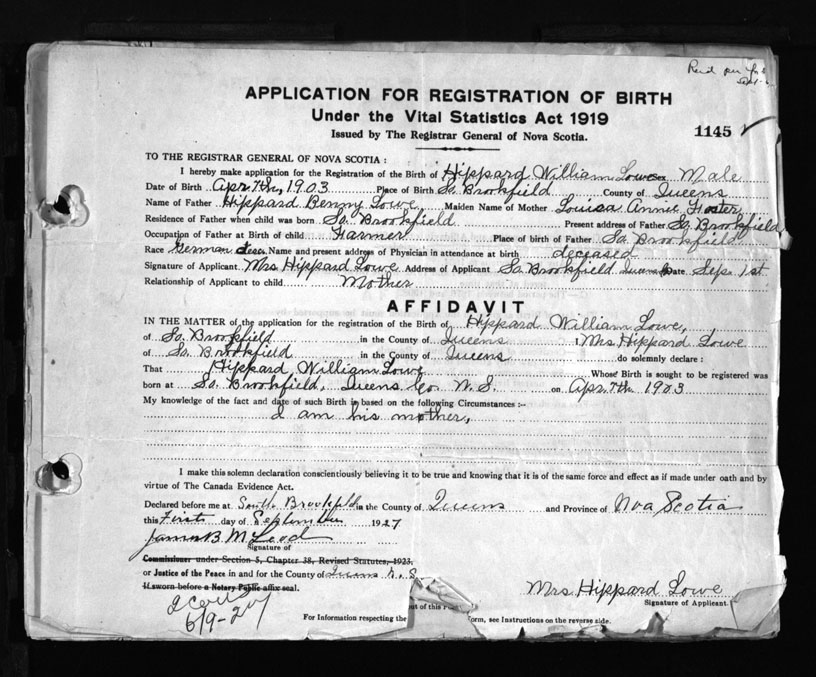 APPLICATION FOR REGISTRATION OF BIRTH
Under the Vital Statistics Act 1919
Issued by The Registrar General of Nova Scotia.
1145
TO THE REGISTRAR GENERAL OF NOVA SCOTIA :
I hereby make application for the Registration of the Birth of Hippard William Lowe sex Male
Date of Birth Apr 7th, 1903 Place of Birth So. Brookfield County of Queens
Name of Father Hippard Benny Lowe, Maiden Name of Mother Louisa Annie Foster
Residence of Father when child was born So. Brookfield Present address of Father So. Brookfield
Occupation of Father at Birth of child Farmer Place of birth of Father So. Brookfield
Race German Name and present address of Physician in attendance at birth deceased
Signature of Applicant Mrs Hippard Lowe Address of Applicant So. Brookfield Queens Date Sep. 1st
Relationship of Applicant to child Mother
AFFIDAVIT
IN THE MATTER of the application for the registration of the Birth of Hippard William Lowe,
of So. Brookfield in the County of Queens I Mrs Hippard Lowe
of So. Brookfield in the County of Queens do solemnly declare :
That Hippard William Lowe Whose Birth is sought to be registered was
born at So. Brookfield, Queens Co. N.S. on Apr. 7th 1903
My knowledge of the fact and date of such Birth is based on the following Circumstances :-
I am his mother,
I make this solemn declaration conscientiously believing it to be true and knowing that it is of the same force and effect as if made under oath and by
virtue of The Canada Evidence Act.
Declared before me at South Brookfield in the County of Queens and Province of Nova Scotia
this First day of September 1927
James B. McLeod
Signature of
Commissioner under Section 5, Chapter 38, Revised Statutes, 1923.
or Justice of the Peace in and for the County of Queens N.S.
If sworn before a Notary Public affix seal.
Mrs Hippard Lowe
Signature of Applicant.
6/9-27
out of this
For Information respecting the orm, see Instructions on the reverse side.